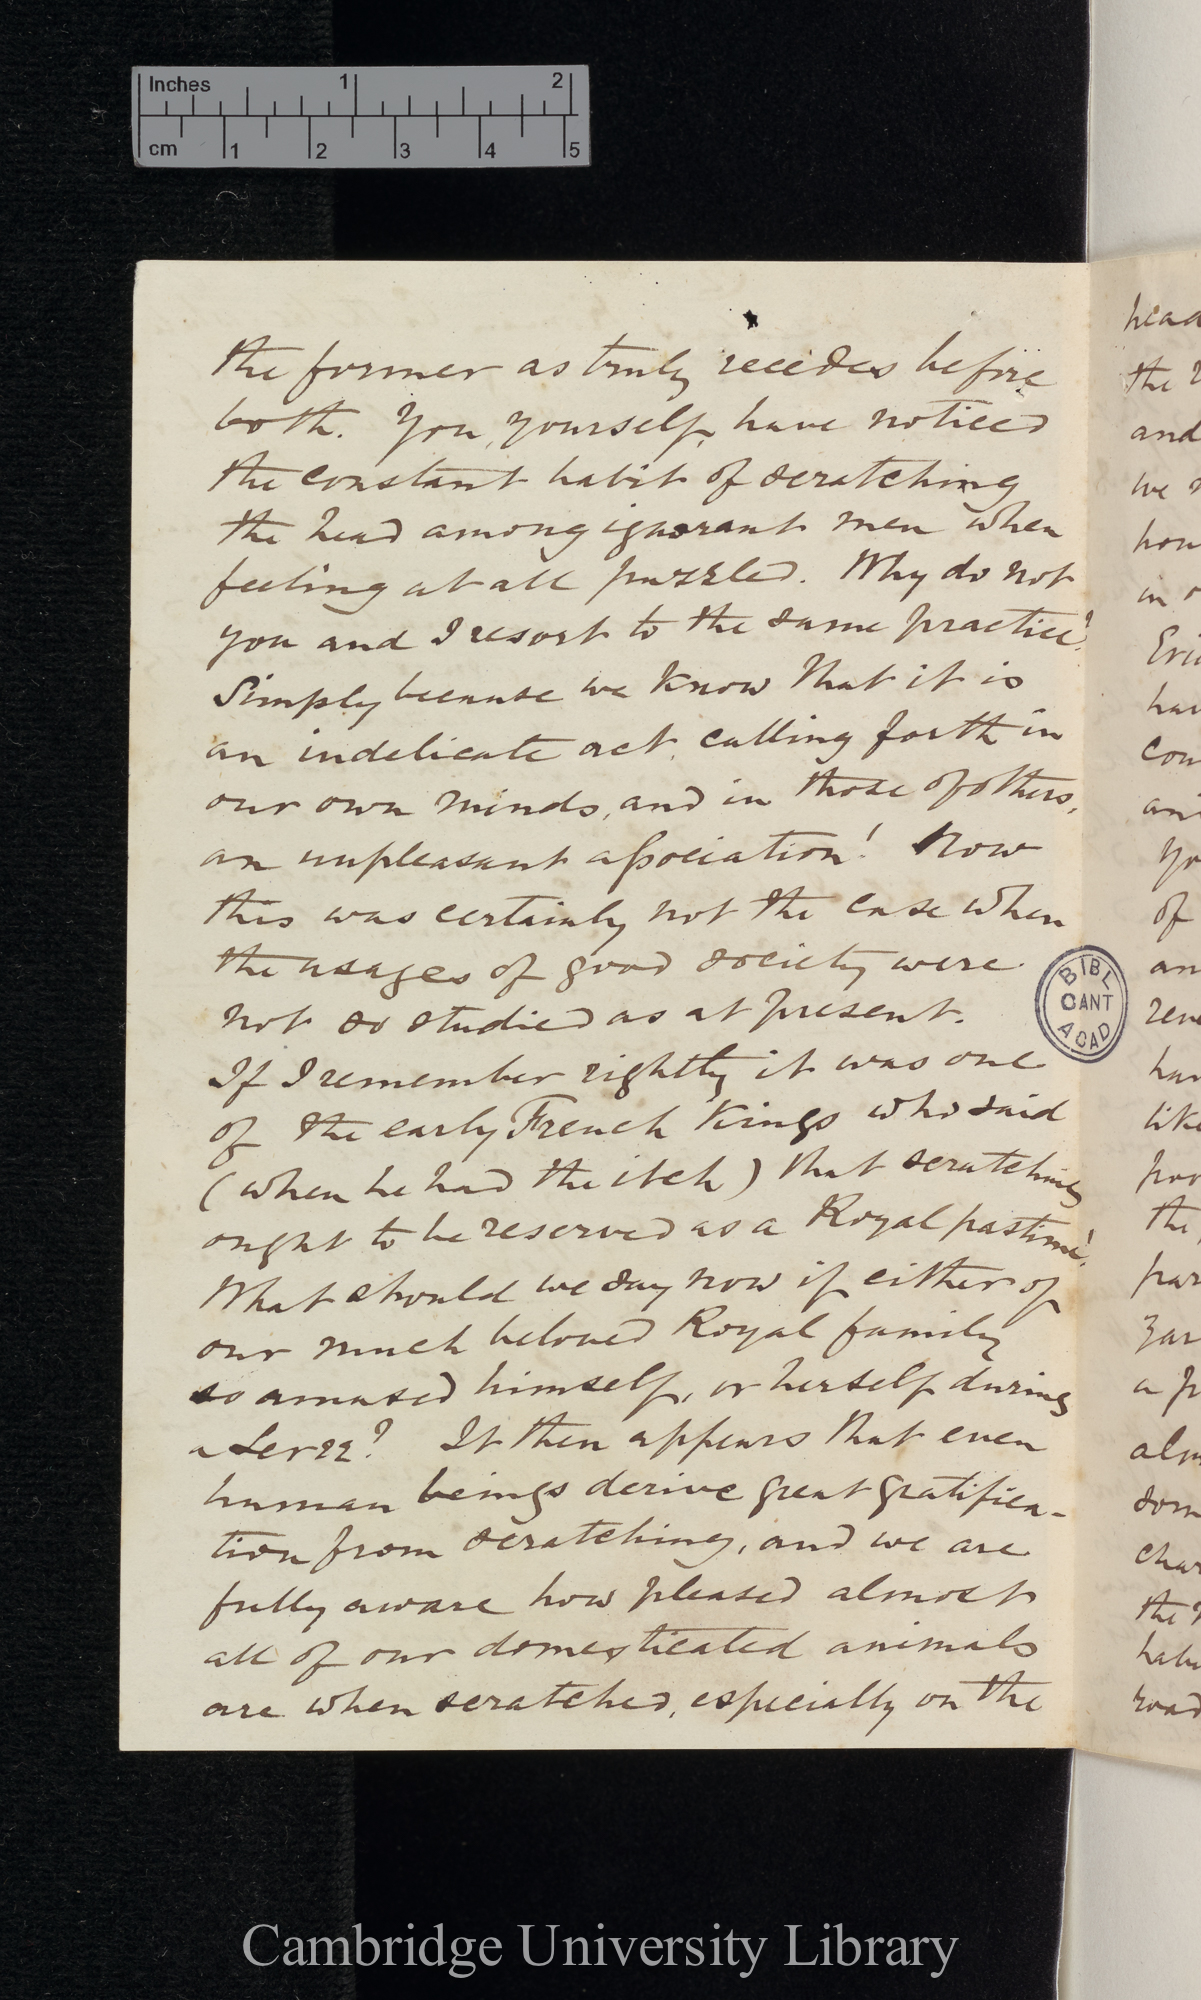 Inches 1 2
cm 1 2 3 4 5
the former as truly recedes before
both. You, yourself, have noticed
the constant habit of scratching
the head among ignorant men when
feeling at all puzzled. Why do not
you and I resort to the same practice?
Simply because we know that it is
an indelicate act, calling forth in
our own minds, and in those of others,
an unpleasant aſsociation! Now
this was certainly not the case when
the usages of good society were
not so studied as at present.
If I remember rightly it was one
of the early French Kings who said
(when he had the itch) that scratching
ought to be reserved as a Royal pastime!
What should we say now if either of
our much beloved Royal family
so amused himself, or herself during
a Levee? It then appears that even
human beings derive great gratifica-
tion from scratching, and we are
fully aware how pleased almost
all of our domesticated animals
are when scratched, especially on the
BIBL
CANT
ACAD
and
we
of
Cambridge University Library